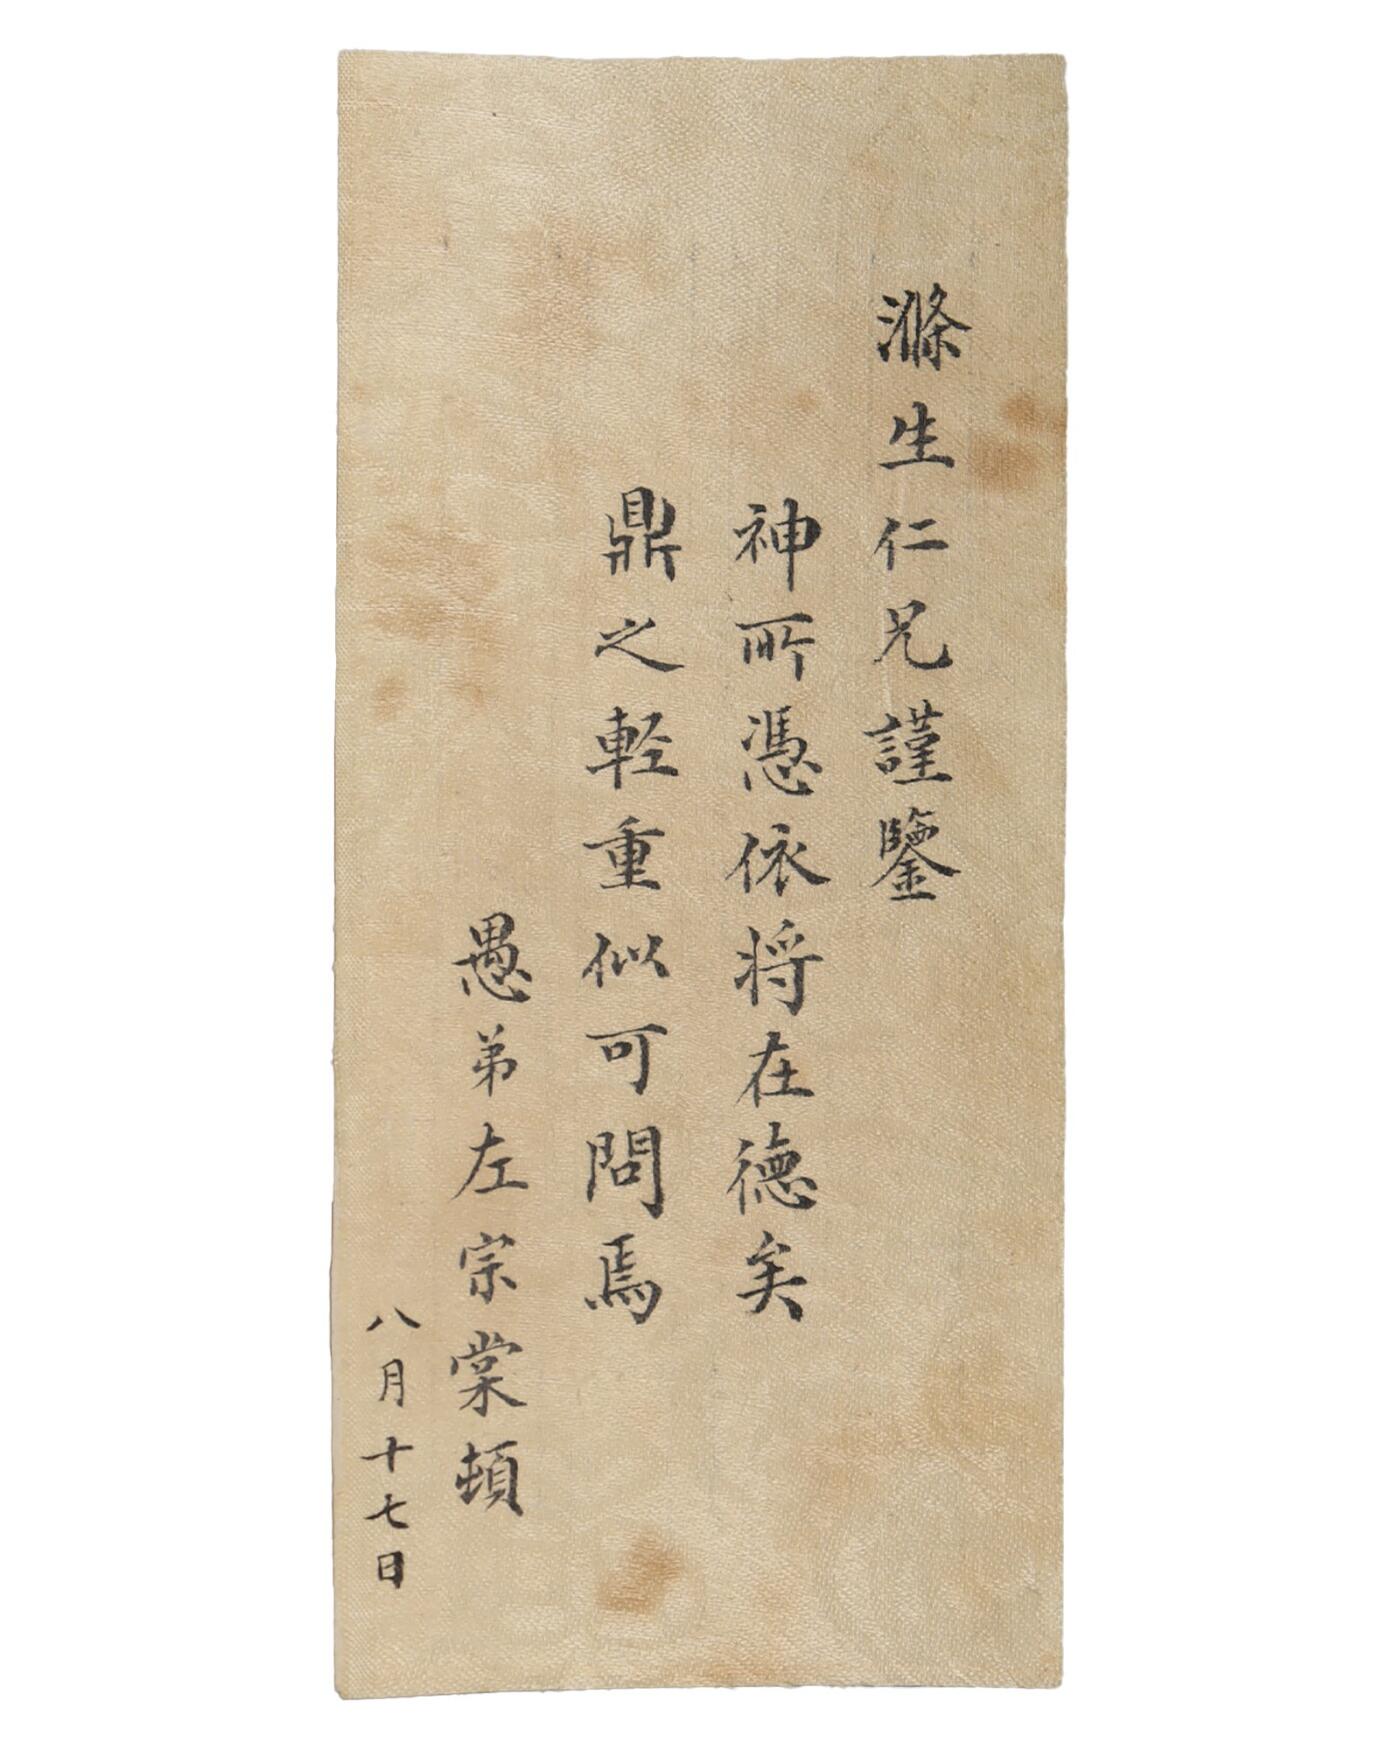 滌生仁兄謹鑒
神所憑依将在德矣
鼎之軽重似可問焉
愚弟左宗棠頓
八月十七日